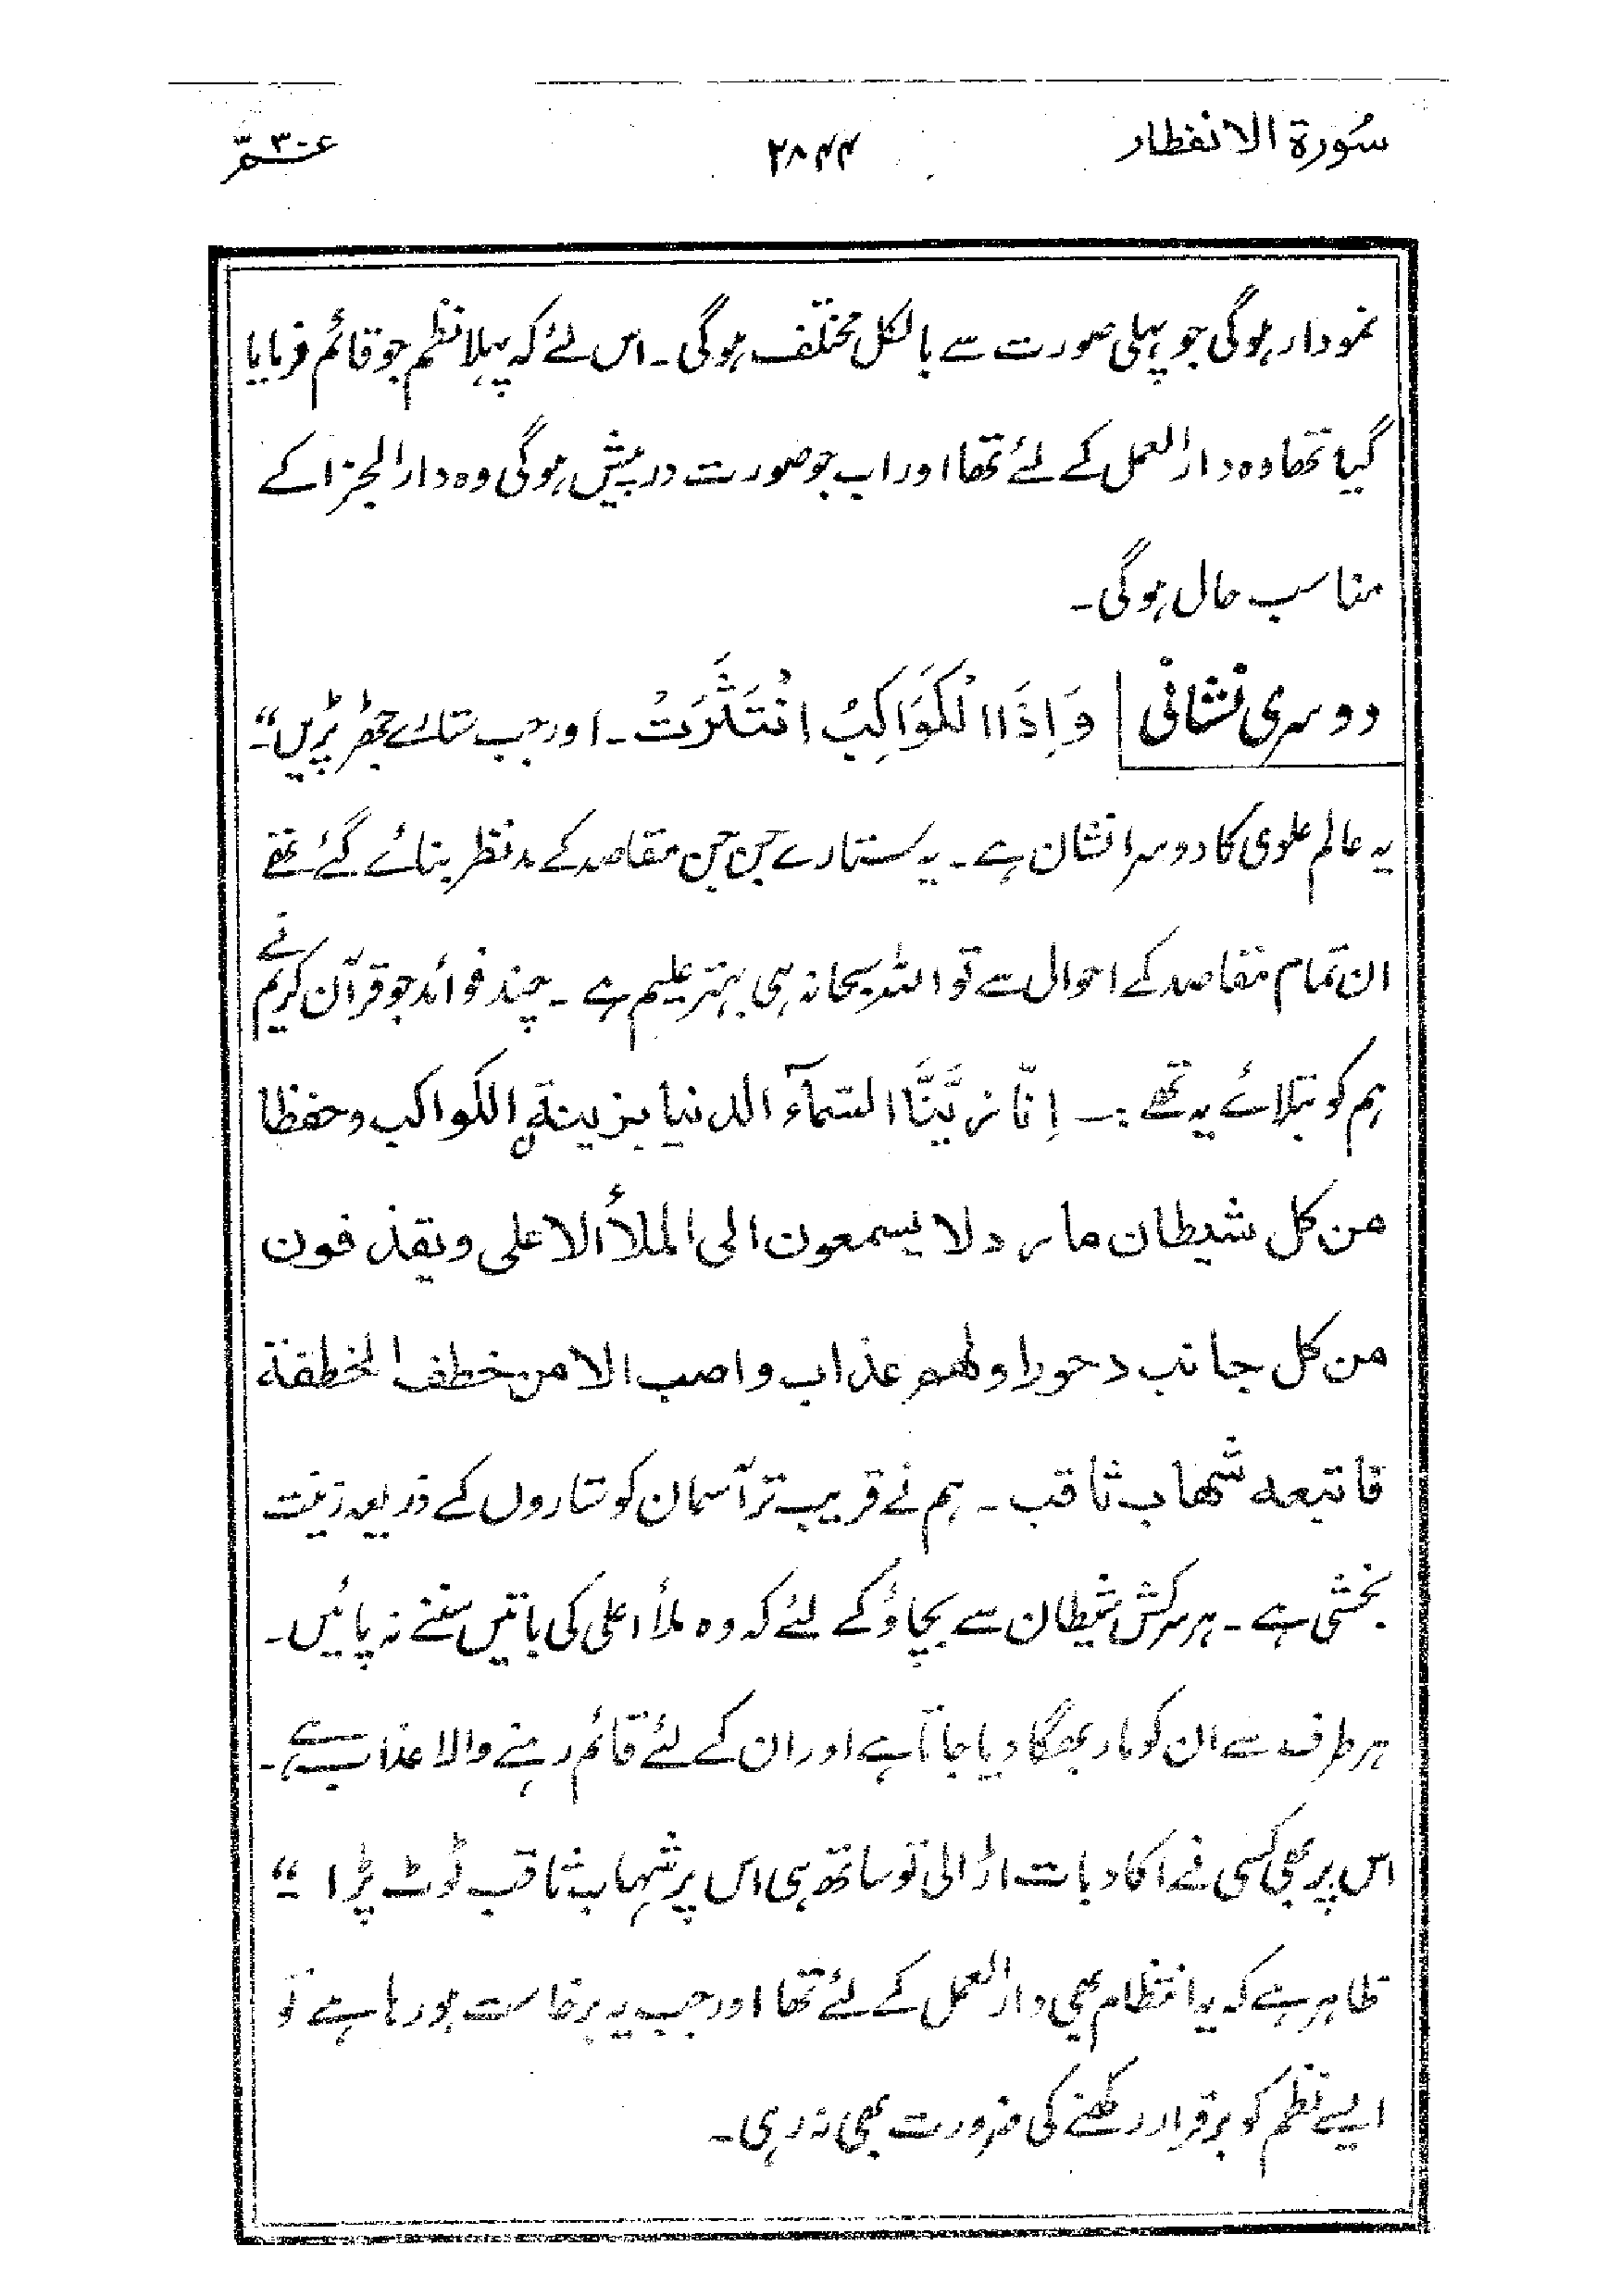 سُورة الانفطار ۲۸۴۴ عـمّ ۳۰
نمودار ہوگی جو پہلی صورت سے بالکل مختلف ہوگی۔ اس لئے کہ پہلا نظم جو قائم فرمایا
گیا تھا وہ دارالعمل کے لئے تھا اور اب جو صورت درپیش ہوگی وہ دارالجزا کے
مناسب حال ہوگی۔
دوسری نشانی وَاِذَا الْكَوَاكِبُ انْتَثَرَتْ۔ اور جب ستارے جھڑ پڑیں“۔
یہ عالم علوی کا دوسرا نشان ہے۔ یہ ستارے جن جن مقاصد کے مدنظر بنائے گئے تھے
ان تمام مقاصد کے احوال سے تو اللہ سبحانہ ہی بہتر علیم ہے۔ چند فوائد جو قرآن کریم نے
ہم کو بتلائے یہ تھے :۔ اِنَّا زَيَّنَّا السَّمآءَ الدنیا بزینةِ الکواکب وحفظا
من کل شیطان مارد لا یسمعون الی الملأ الاعلی ویقذفون
من کل جانب دحورا ولهم عذاب واصب الا من خطف الخطفة
فاتبعه شهاب ثاقب۔ ہم نے قریب تر آسمان کو ستاروں کے ذریعہ زینت
بخشی ہے۔ ہر سرکش شیطان سے بچاؤ کے لئے کہ وہ ملأ اعلی کی باتیں سننے نہ پائیں۔
ہر طرف سے ان کو مار بھگا دیا جاتا ہے اور ان کے لئے قائم رہنے والا عذاب ہے۔
اس پر بھی کسی نے اکا دبات اڑا لی تو ساتھ ہی اس پر شہاب ثاقب ٹوٹ پڑا ۔“
ظاہر ہے کہ یہ انتظام بھی دارالعمل کے لئے تھا اور جب یہ برخاست ہو رہا ہے تو
ایسے نظم کو برقرار رکھنے کی ضرورت بھی نہ رہی۔